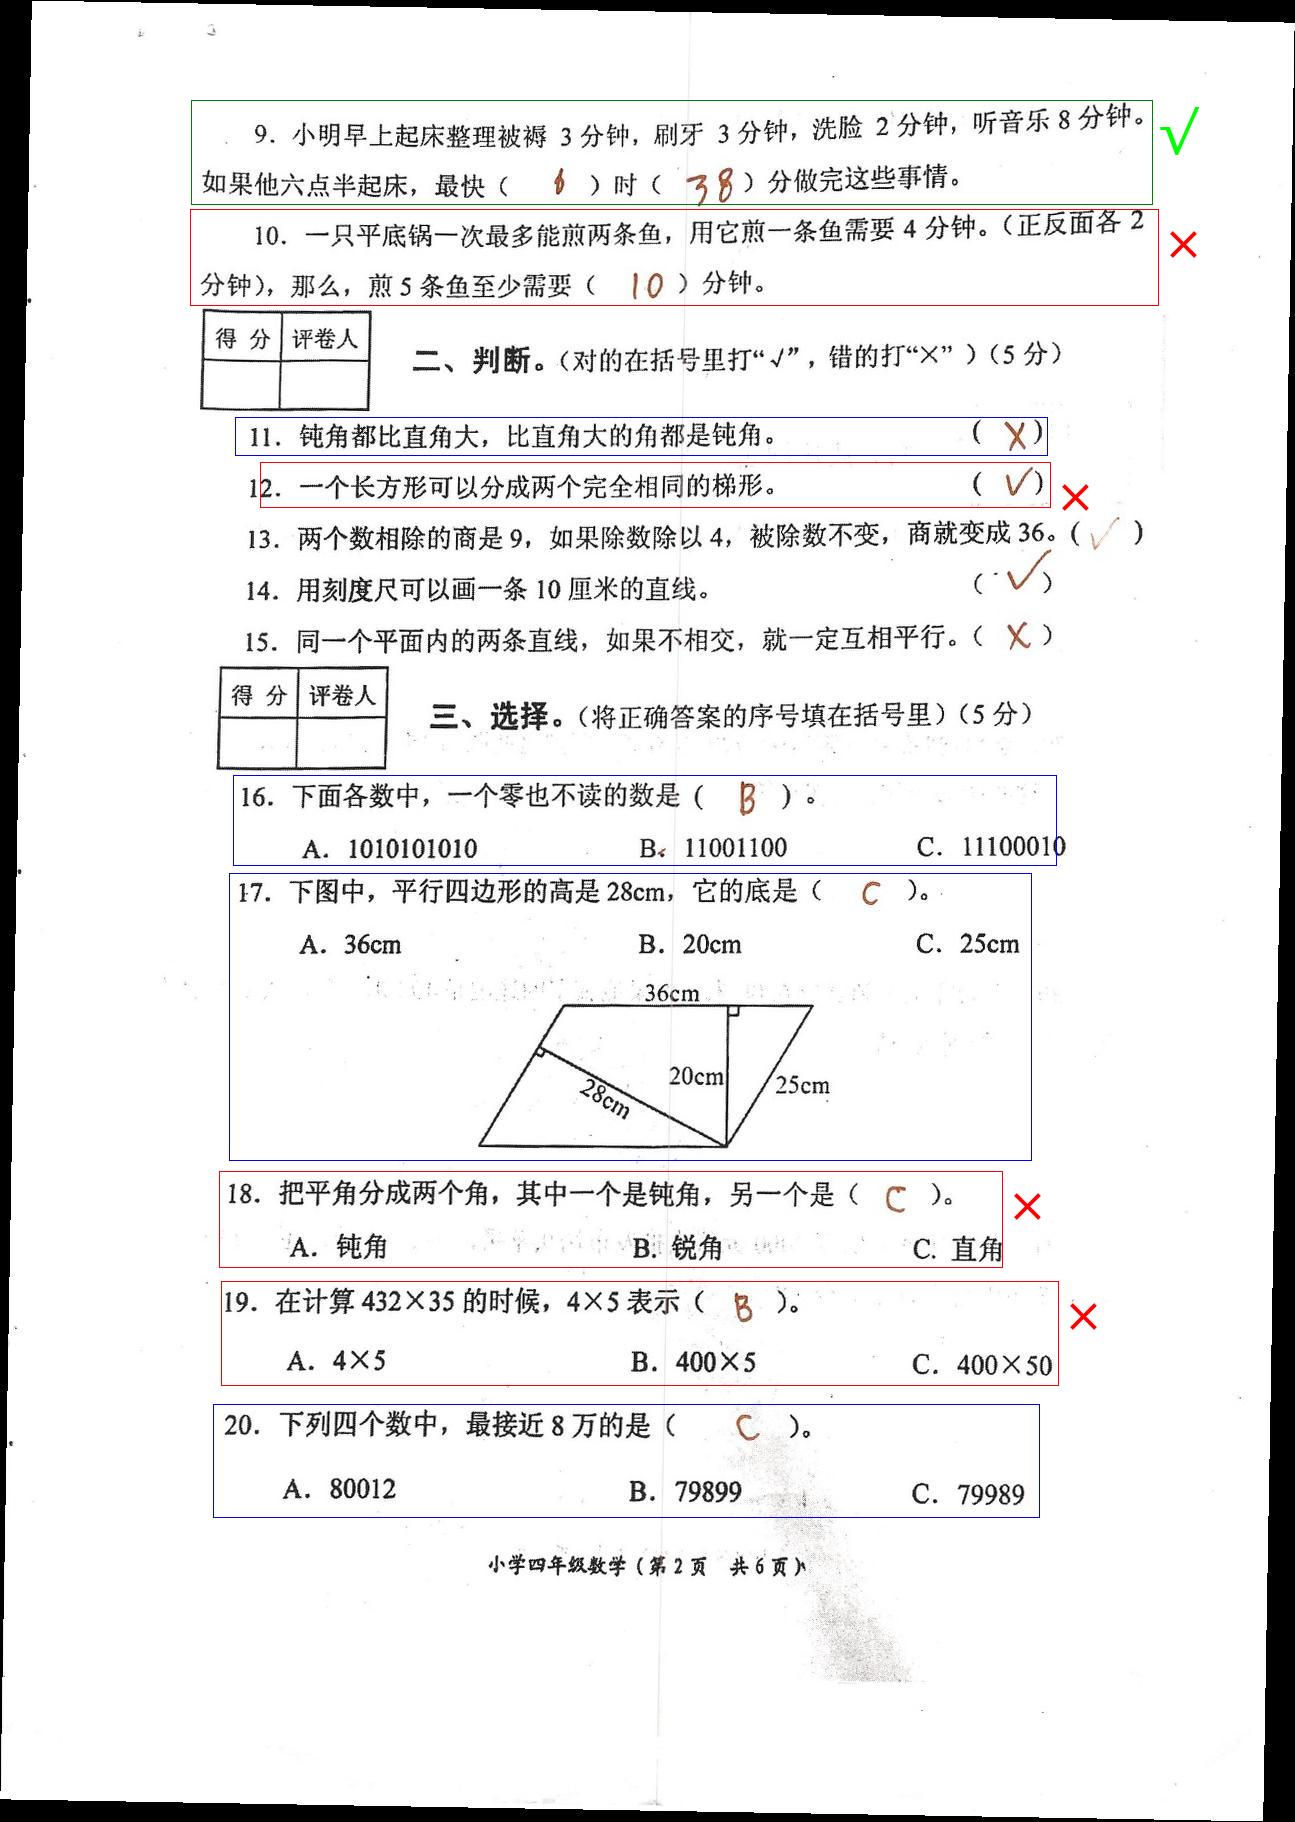 9. 小明早上起床整理被褥 3 分钟，刷牙 3 分钟，洗脸 2 分钟，听音乐 8 分钟。
如果他六点半起床，最快（ 6 ）时（ 38 ）分做完这些事情。
10. 一只平底锅一次最多能煎两条鱼，用它煎一条鱼需要 4 分钟。（正反面各 2
分钟），那么，煎 5 条鱼至少需要（ 10 ）分钟。
得 分 评卷人
二、判断。（对的在括号里打“√”，错的打“×”）（5 分）
11. 钝角都比直角大，比直角大的角都是钝角。 （ X ）
12. 一个长方形可以分成两个完全相同的梯形。 （ √ ）
13. 两个数相除的商是 9，如果除数除以 4，被除数不变，商就变成 36。（ √ ）
14. 用刻度尺可以画一条 10 厘米的直线。 （ √ ）
15. 同一个平面内的两条直线，如果不相交，就一定互相平行。（ X ）
得 分 评卷人
三、选择。（将正确答案的序号填在括号里）（5 分）
16. 下面各数中，一个零也不读的数是（ B ）。
A. 1010101010 B. 11001100 C. 11100010
17. 下图中，平行四边形的高是 28cm，它的底是（ C ）。
A. 36cm B. 20cm C. 25cm
36cm
20cm
28cm
25cm
18. 把平角分成两个角，其中一个是钝角，另一个是（ C ）。
A. 钝角 B. 锐角 C. 直角
19. 在计算 432×35 的时候，4×5 表示（ B ）。
A. 4×5 B. 400×5 C. 400×50
20. 下列四个数中，最接近 8 万的是（ C ）。
A. 80012 B. 79899 C. 79989
小学四年级数学（第 2 页 共 6 页）